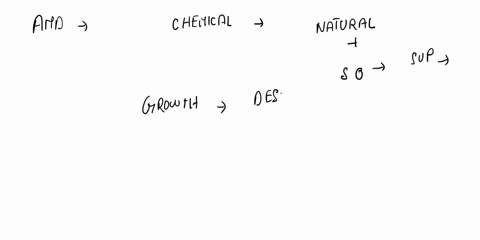 AND → CHEMICAL → NATURAL
+
SO → SUP →
GROWTH → DES.